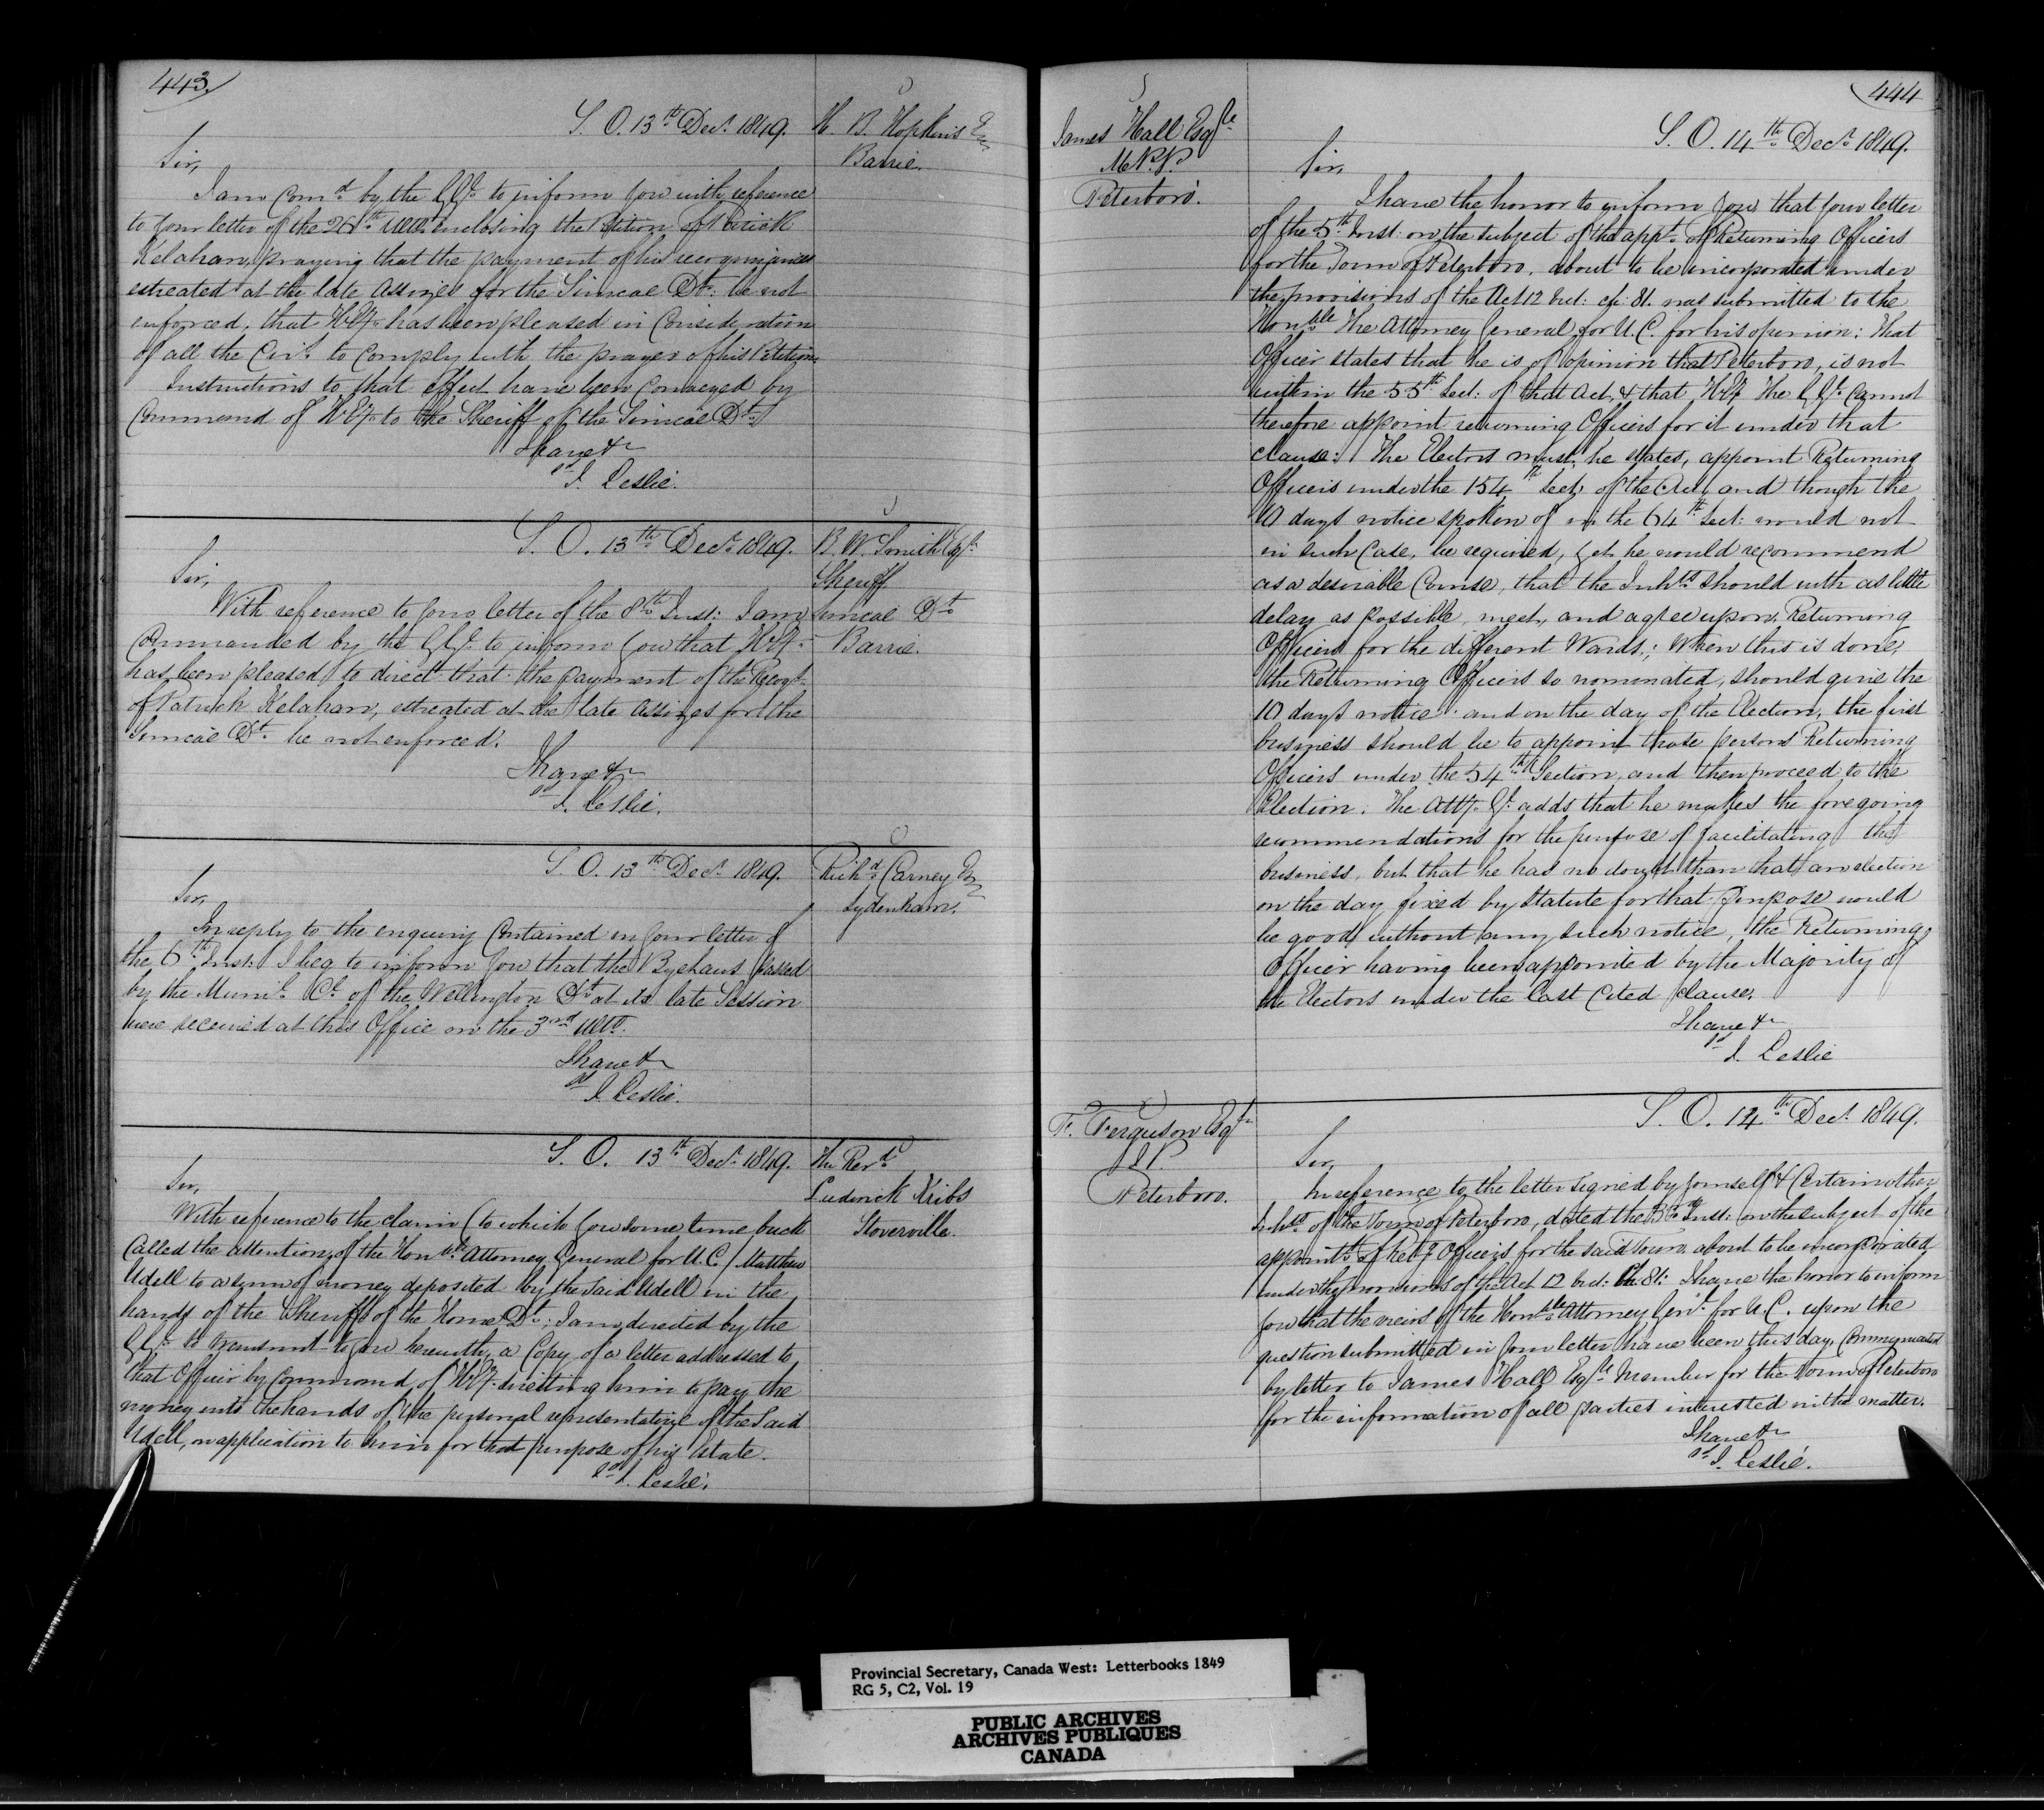 443.
S. O. 13th Decr. 1849.
H. B. Hopkins Er
Barrie.
Sir,
I am Comd. by the G.G. to inform you with reference
to your letter of the 26th ulto. enclosing the Petition of Patrick
Kelahan, praying that the payment of his recognizances
estreated at the late Assizes for the Simcoe Dt. be not
enforced, that H.Ey. has been pleased in Consideration
of all the Cirs. to Comply with the prayer of his Petition.
Instructions to that effect have been Conveyed by
Command of H.Ey. to the Sheriff of the Simcoe Dt.
I have &c
sd J. Leslie.
S. O. 13th Decr. 1849.
B. W. Smith Esqr.
Sheriff
Simcoe Dt.
Barrie.
Sir,
With reference to your letter of the 8th Inst: I am
Commanded by the G.G. to inform you that H.Ey.
has been pleased to direct that the payment of the Recogs.
of Patrick Kelahan, estreated at the late Assizes for the
Simcoe Dt. be not enforced.
I have &c
sd J. Leslie.
S. O. 13th Decr. 1849.
Richd. Carney Er
Sydenham.
Sir,
In reply to the enquiry Contained in your letter of
the 6th Inst: I beg to inform you that the Byelaws passed
by the Munil. Cl. of the Wellington Dt. at its late Session
were received at this Office on the 3rd ulto.
I have &c
sd J. Leslie.
S. O. 13th Decr. 1849.
The Revd.
Luderick Kribs
Stoverville.
Sir,
With reference to the claim (to which you some time back
Called the attention of the Honble. Attorney General for U.C.) Matthew
Udell to a sum of money deposited by the said Udell in the
hands of the Sheriff of the Home Dt.; I am directed by the
G.G. to transmit to you herewith, a Copy of a letter addressed to
that Officer by Command of H.Ey. directing him to pay the
money into the hands of the personal representative of the Said
Udell, on application to him for that purpose of his Estate.
sd J. Leslie.
444
James Hall Esqre.
M.P.P.
Peterboro'.
S. O. 14th Decr. 1849.
Sir,
I have the honor to inform you that your letter
of the 5th Inst: on the subject of the appt. of Returning Officers
for the Town of Peterboro, about to be incorporated under
the provisions of the Act 12 Vict: ch: 81. was submitted to the
Honble. the Attorney General for U.C. for his opinion: That
Officer states that he is of opinion that Peterboro, is not
within the 55th Sect: of that Act, & that H.Ey. The G.G. Cannot
therefore appoint returning Officers for it under that
clause: The Electors must, he states, appoint Returning
Officers under the 154th Sect. of the Act, and though the
10 days notice spoken of in the 64th Sect: would not
in such Case, be required, yet he would recommend
as a desirable Course, that the Inhts. should with as little
delay as possible, meet, and agree upon, Returning
Officers for the different Wards; When this is done,
the Returning Officers so nominated, should give the
10 days notice and on the day of the Election, the first
business should be to appoint those persons Returning
Officers under the 54th Section, and then proceed to the
Election. The Atty. Gl. adds that he makes the foregoing
recommendations for the purpose of facilitating the
business, but that he has no doubt than that an election
on the day fixed by Statute for that Purpose would
be good without any such notice, the Returning
Officer having been appointed by the Majority of
the Electors under the last Cited clause.
I have &c
sd J. Leslie
F. Ferguson Esqr.
J.P.
Peterboro.
S. O. 14th Decr. 1849.
Sir,
In reference to the letter signed by yourself & Certain other
Inhts. of the Town of Peterboro, dated the Inst: on the subject of the
appointt. of Retg Officers for the said Town about to be incorporated,
under the provisions of the Act 12 Vict: Ch: 81: I have the honor to inform
you that the views of the Honble. Attorney Genl. for U.C. upon the
question submitted in your letter have been this day, Communicated
by letter to James Hall Esqre. Member for the Town of Peterboro
for the information of all parties interested in the matter.
I have &c
sd J. Leslie.
Provincial Secretary, Canada West: Letterbooks 1849
RG 5, C2, Vol. 19
PUBLIC ARCHIVES
ARCHIVES PUBLIQUES
CANADA